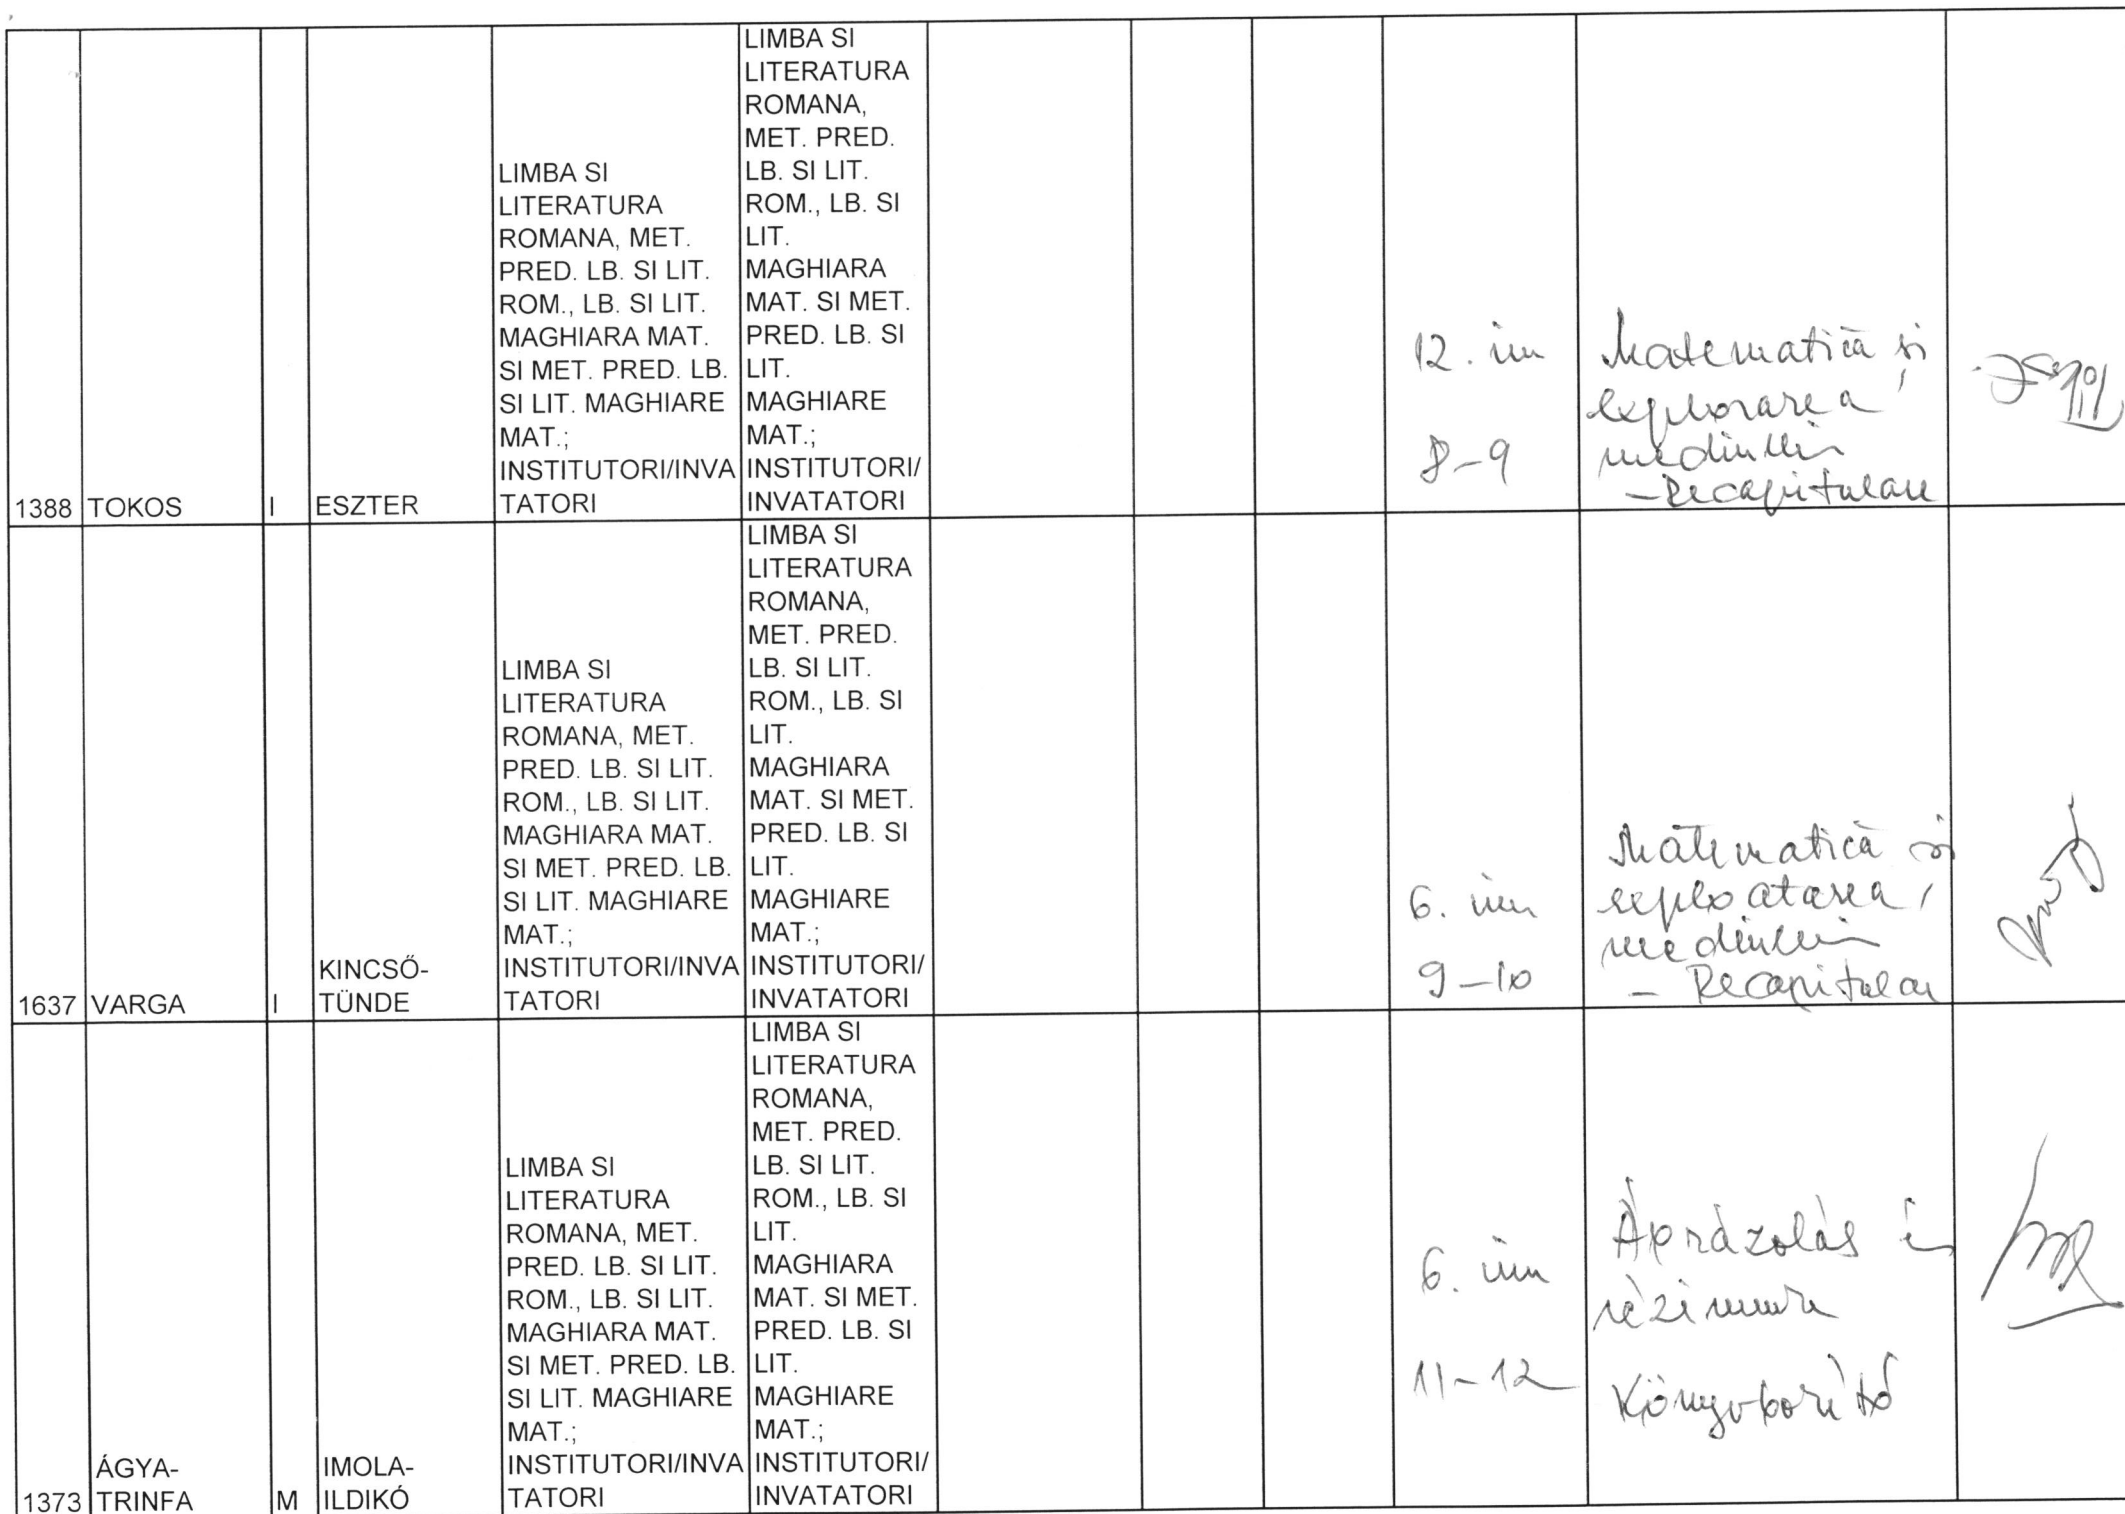 LIMBA SI
LITERATURA
ROMANA, MET.
PRED. LB. SI LIT.
ROM., LB. SI LIT.
MAGHIARA MAT.
SI MET. PRED. LB.
SI LIT. MAGHIARE
MAT.;
INSTITUTORI/INVA
TATORI
LIMBA SI
LITERATURA
ROMANA,
MET. PRED.
LB. SI LIT.
ROM., LB. SI
LIT.
MAGHIARA
MAT. SI MET.
PRED. LB. SI
LIT.
MAGHIARE
MAT.;
INSTITUTORI/
INVATATORI
1388 TOKOS I ESZTER
12. iun
8-9
Matematică și
explorarea
mediului
- Recapitulare
LIMBA SI
LITERATURA
ROMANA, MET.
PRED. LB. SI LIT.
ROM., LB. SI LIT.
MAGHIARA MAT.
SI MET. PRED. LB.
SI LIT. MAGHIARE
MAT.;
INSTITUTORI/INVA
TATORI
LIMBA SI
LITERATURA
ROMANA,
MET. PRED.
LB. SI LIT.
ROM., LB. SI
LIT.
MAGHIARA
MAT. SI MET.
PRED. LB. SI
LIT.
MAGHIARE
MAT.;
INSTITUTORI/
INVATATORI
KINCSŐ-
1637 VARGA I TÜNDE
6. iun
9-10
Matematică și
exploatarea
mediului
- Recapitulare
LIMBA SI
LITERATURA
ROMANA, MET.
PRED. LB. SI LIT.
ROM., LB. SI LIT.
MAGHIARA MAT.
SI MET. PRED. LB.
SI LIT. MAGHIARE
MAT.;
INSTITUTORI/INVA
TATORI
LIMBA SI
LITERATURA
ROMANA,
MET. PRED.
LB. SI LIT.
ROM., LB. SI
LIT.
MAGHIARA
MAT. SI MET.
PRED. LB. SI
LIT.
MAGHIARE
MAT.;
INSTITUTORI/
INVATATORI
ÁGYA- IMOLA-
1373 TRINFA M ILDIKÓ
6. iun
11-12
Ábrázolás és
kézimunka
Könyvborító